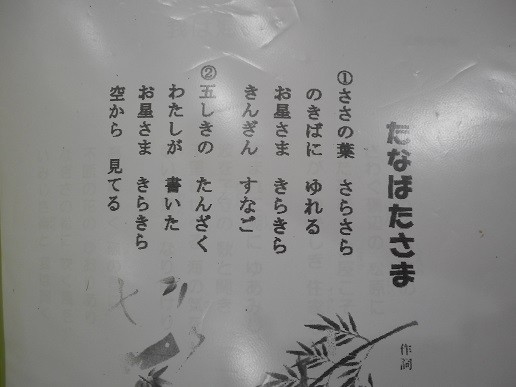 たなばたさま
作詞
①ささの葉 さらさら
のきばに ゆれる
お星さま きらきら
きんぎん すなご
②五しきの たんざく
わたしが 書いた
お星さま きらきら
空から 見てる